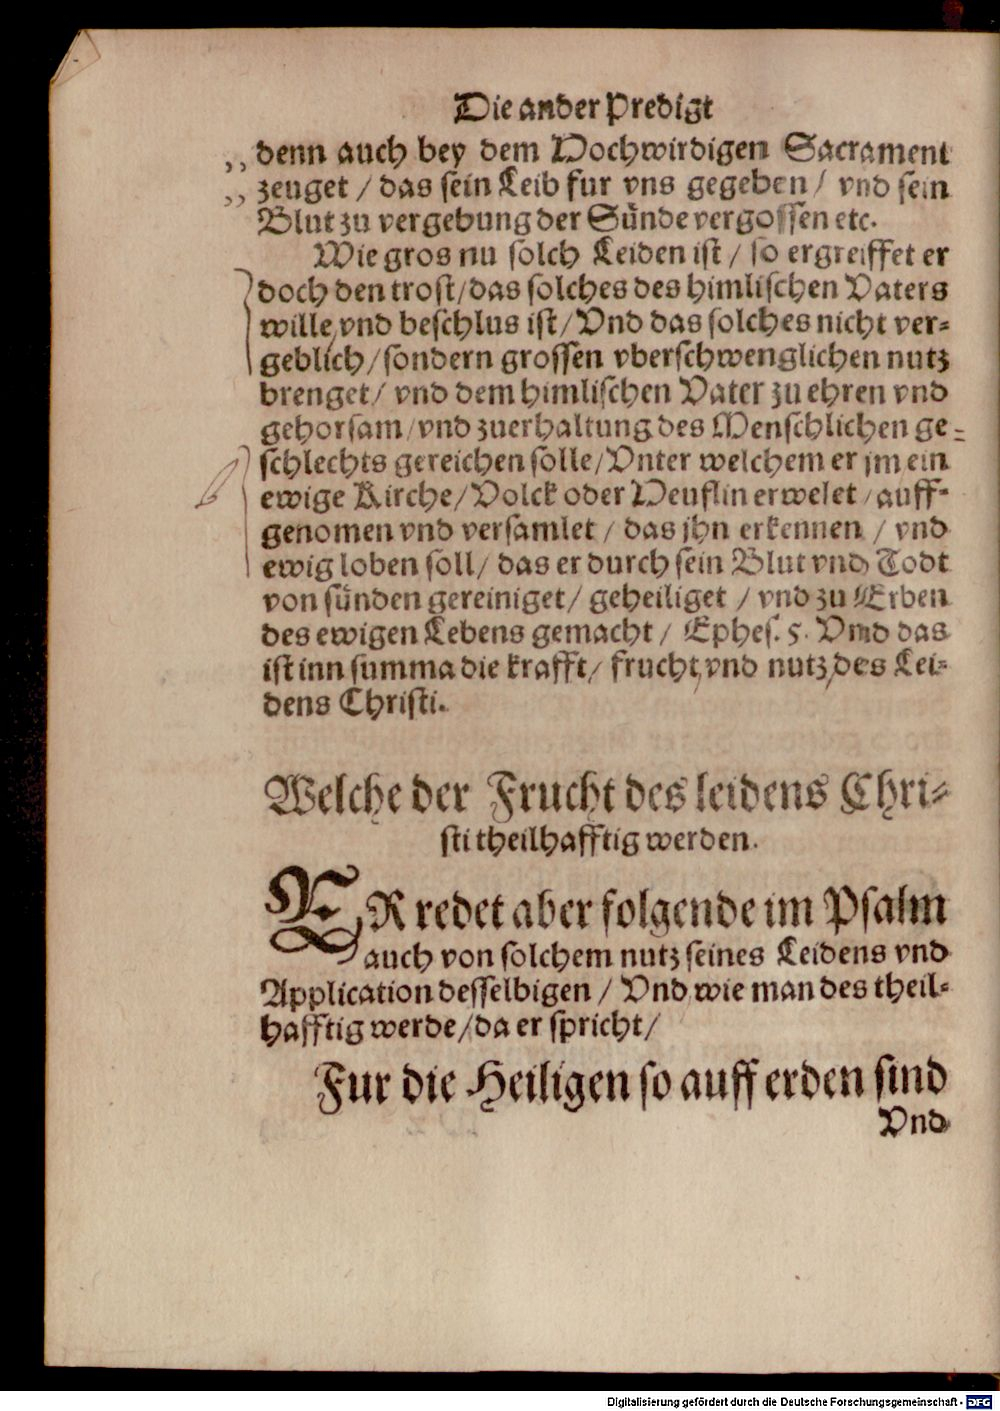 Die ander Predigt
,, denn auch bey dem Hochwirdigen Sacrament
,, zeuget / das sein Leib fur vns gegeben / vnd sein
Blut zu vergebung der Sünde vergossen etc.
Wie gros nu solch Leiden ist / so ergreiffet er
doch den trost / das solches des himlischen Vaters
wille vnd beschlus ist / Vnd das solches nicht ver-
geblich / sondern grossen vberschwenglichen nutz
brenget / vnd dem himlischen Vater zu ehren vnd
gehorsam / vnd zuerhaltung des Menschlichen ge-
schlechts gereichen solle / Vnter welchem er jm ein
ewige Kirche / Volck oder Heuflin erwelet / auff-
genomen vnd versamlet / das jhn erkennen / vnd
ewig loben soll / das er durch sein Blut vnd Todt
von sünden gereiniget / geheiliget / vnd zu Erben
des ewigen Lebens gemacht / Ephes. 5. Vnd das
ist inn summa die krafft / frucht vnd nutz des Lei-
dens Christi.
Welche der Frucht des leidens Chri-
sti theilhafftig werden.
ER redet aber folgende im Psalm
auch von solchem nutz seines Leidens vnd
Application desselbigen / Vnd wie man des theil-
hafftig werde / da er spricht /
Fur die Heiligen so auff erden sind
Vnd
Digitalisierung gefördert durch die Deutsche Forschungsgemeinschaft - DFG